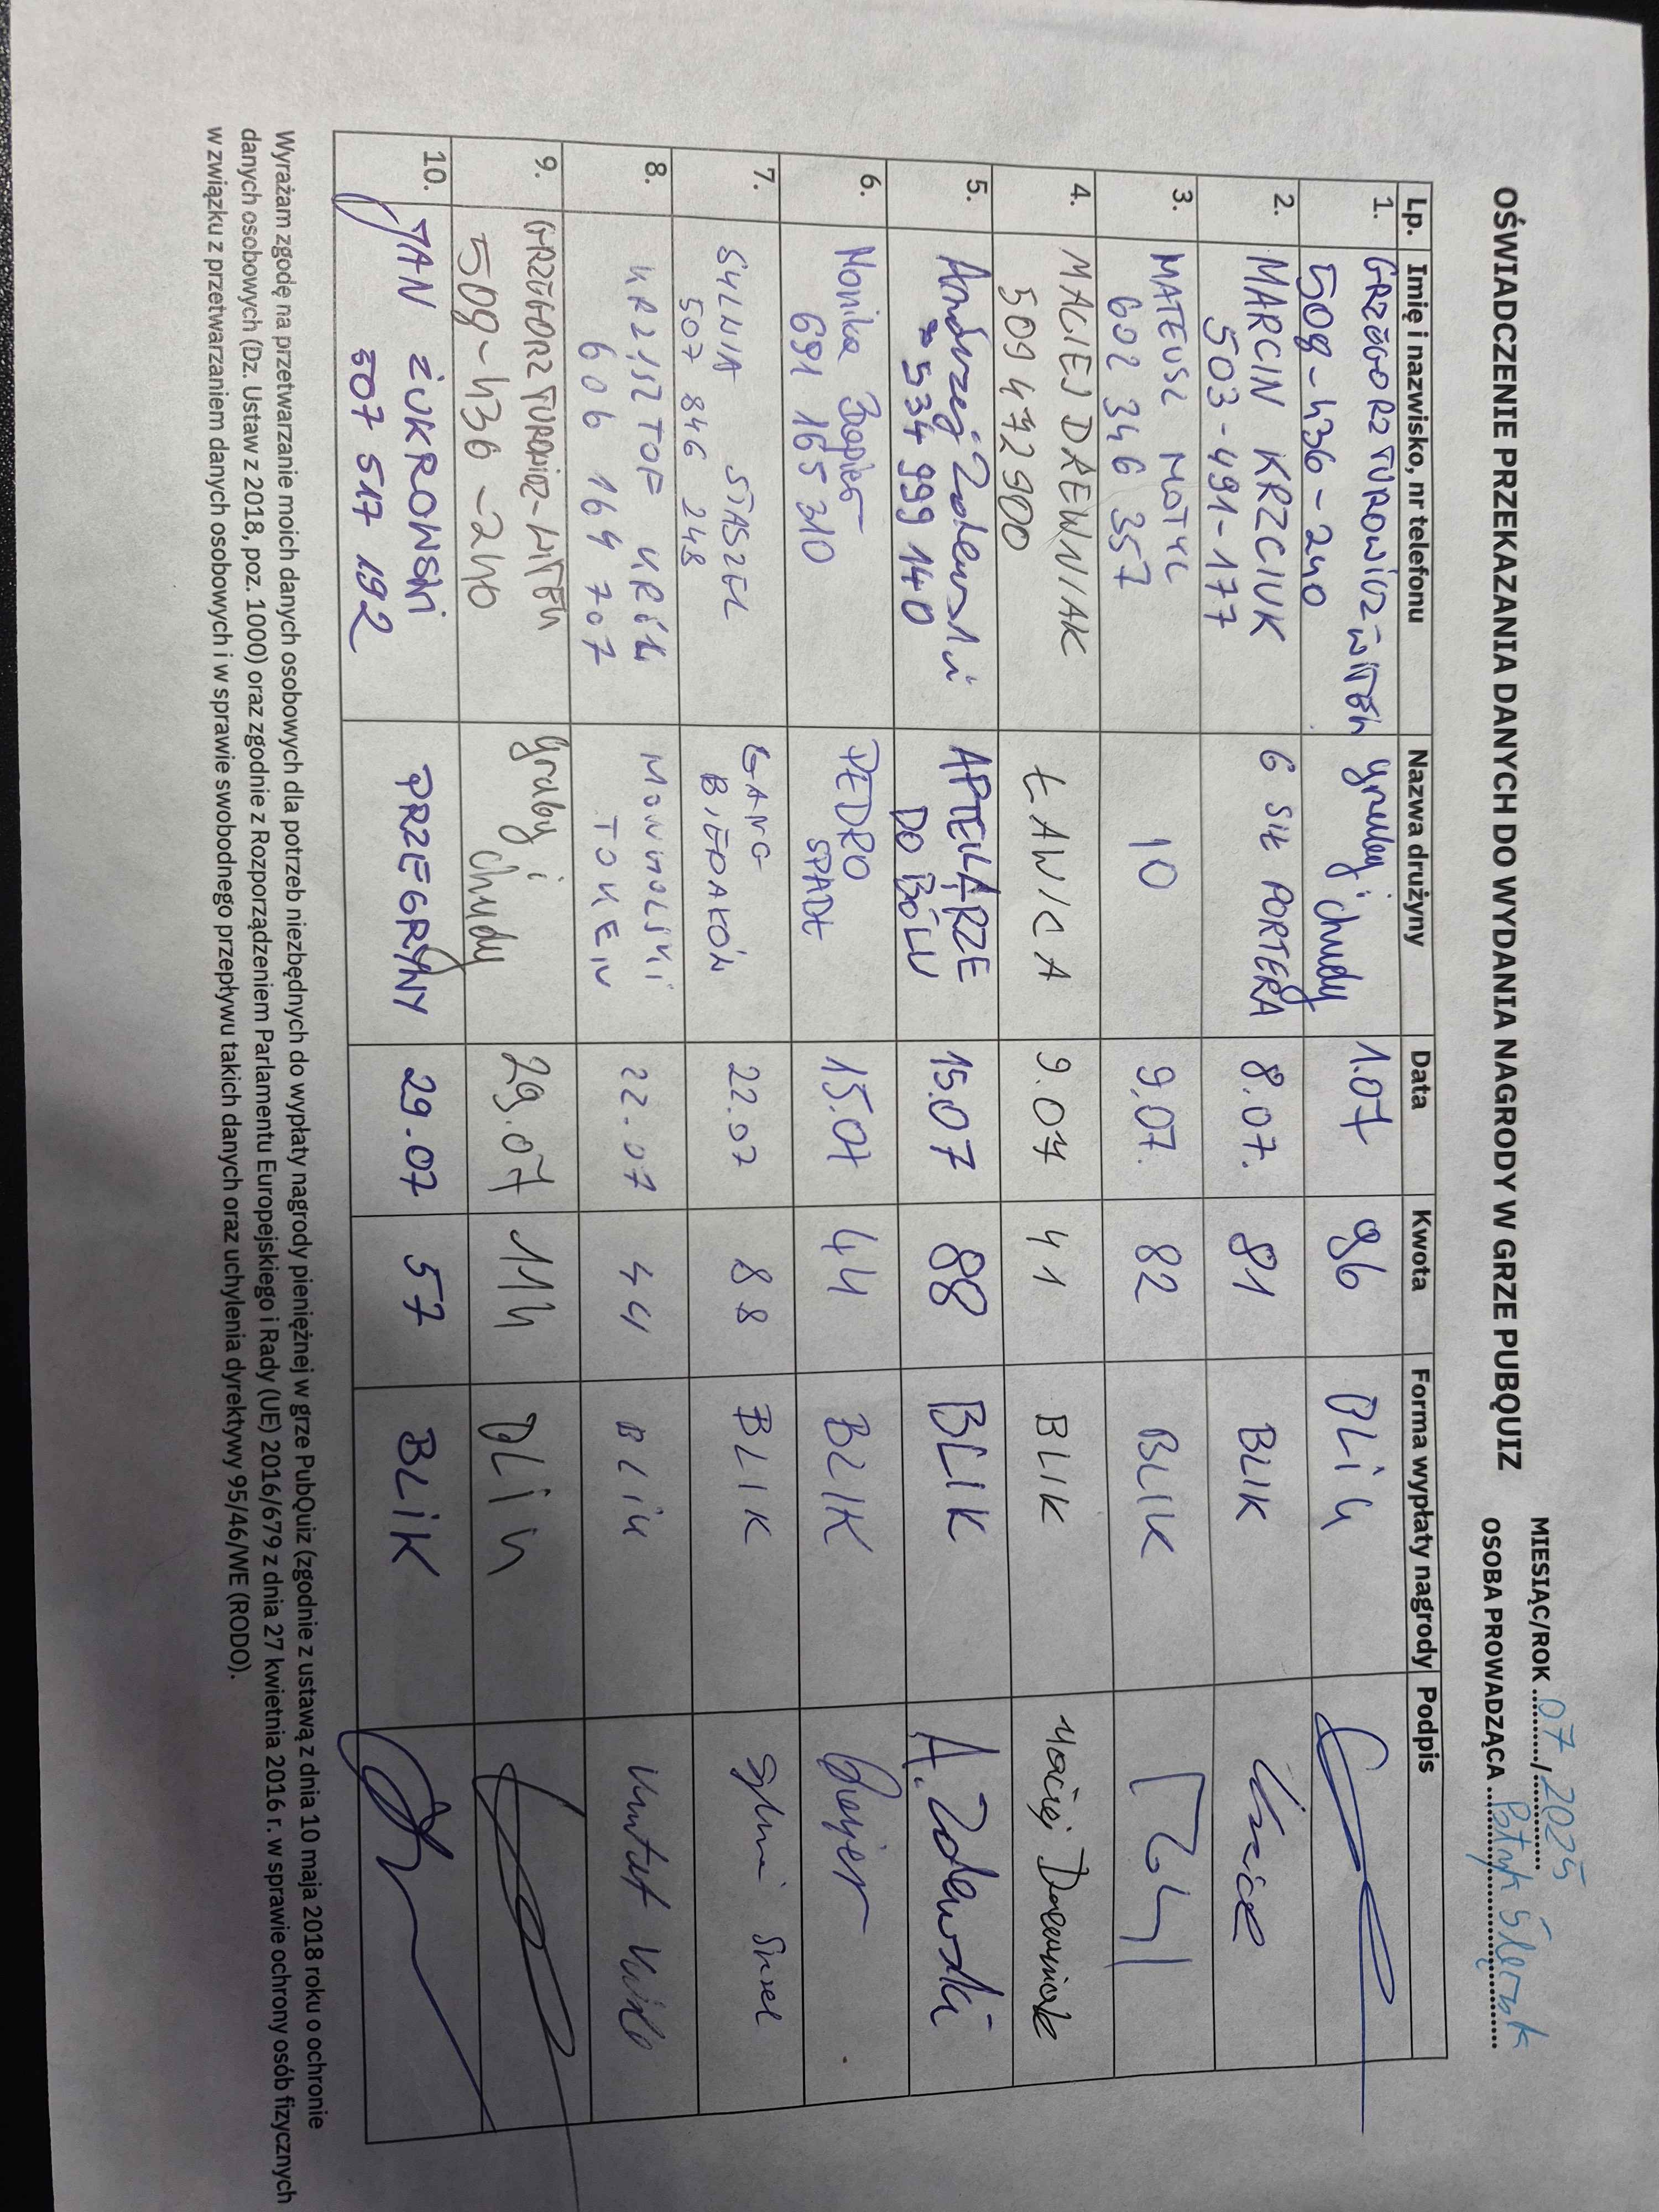 OŚWIADCZENIE PRZEKAZANIA DANYCH DO WYDANIA NAGRODY W GRZE PUBQUIZ
MIESIĄC/ROK 07/2025
OSOBA PROWADZĄCA Patryk
Lp. Imię i nazwisko, nr telefonu Nazwa drużyny Data Kwota Forma wypłaty nagrody Podpis
1. GRZEGORZ TUROWICZ-WITEK gruby i chudy 1.07 96 BLiK
509-436-240
2. MARCIN KRZCIUK 6 SIŁ PORTERA 8.07. 81 BLIK
503-491-177
3. MATEUSZ MOTYL 10 9,07. 82 BLIK
602 346 357
4. MACIEJ DREWNIAK ŁAWICA 9.07 41 BLIK Maciej Drewniak
509 472 900
5. Andrzej Zalewski APTEKARZE 15.07 88 BLIK A. Zalewski
534 999 140 DO BÓLU
6. Monika PEDRO 15.07 44 BLIK
691 165 310 SPADŁ
7. SYLWIA STASZEL GANG 22.07 88 BLIK
507 846 248 BIEDAKÓW
8. KRZYSZTOF KRÓL MONGOLSKI 22.07 44 BLiK
606 164 707 TOKEN
9. GRZEGORZ TUROWICZ-WITEK gruby i 29.07 114 BLiK
509-436-240 chudy
10. JAN ŻUKROWSKI PRZEGRYWY 29.07 57 BLiK
507 517 192
Wyrażam zgodę na przetwarzanie moich danych osobowych dla potrzeb niezbędnych do wypłaty nagrody pieniężnej w grze PubQuiz (zgodnie z ustawą z dnia 10 maja 2018 roku o ochronie
danych osobowych (Dz. Ustaw z 2018, poz. 1000) oraz zgodnie z Rozporządzeniem Parlamentu Europejskiego i Rady (UE) 2016/679 z dnia 27 kwietnia 2016 r. w sprawie ochrony osób fizycznych
w związku z przetwarzaniem danych osobowych i w sprawie swobodnego przepływu takich danych oraz uchylenia dyrektywy 95/46/WE (RODO).